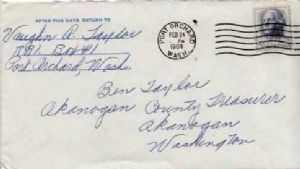 AFTER FIVE DAYS, RETURN TO
Vaughn A. Taylor
Rt 1. Box 41
Port Orchard, Wash.
PORT ORCHARD
FEB 28
PM
1966
WASH.
Ben Taylor
Akanogan County Treasurer
Akanogan
Washington